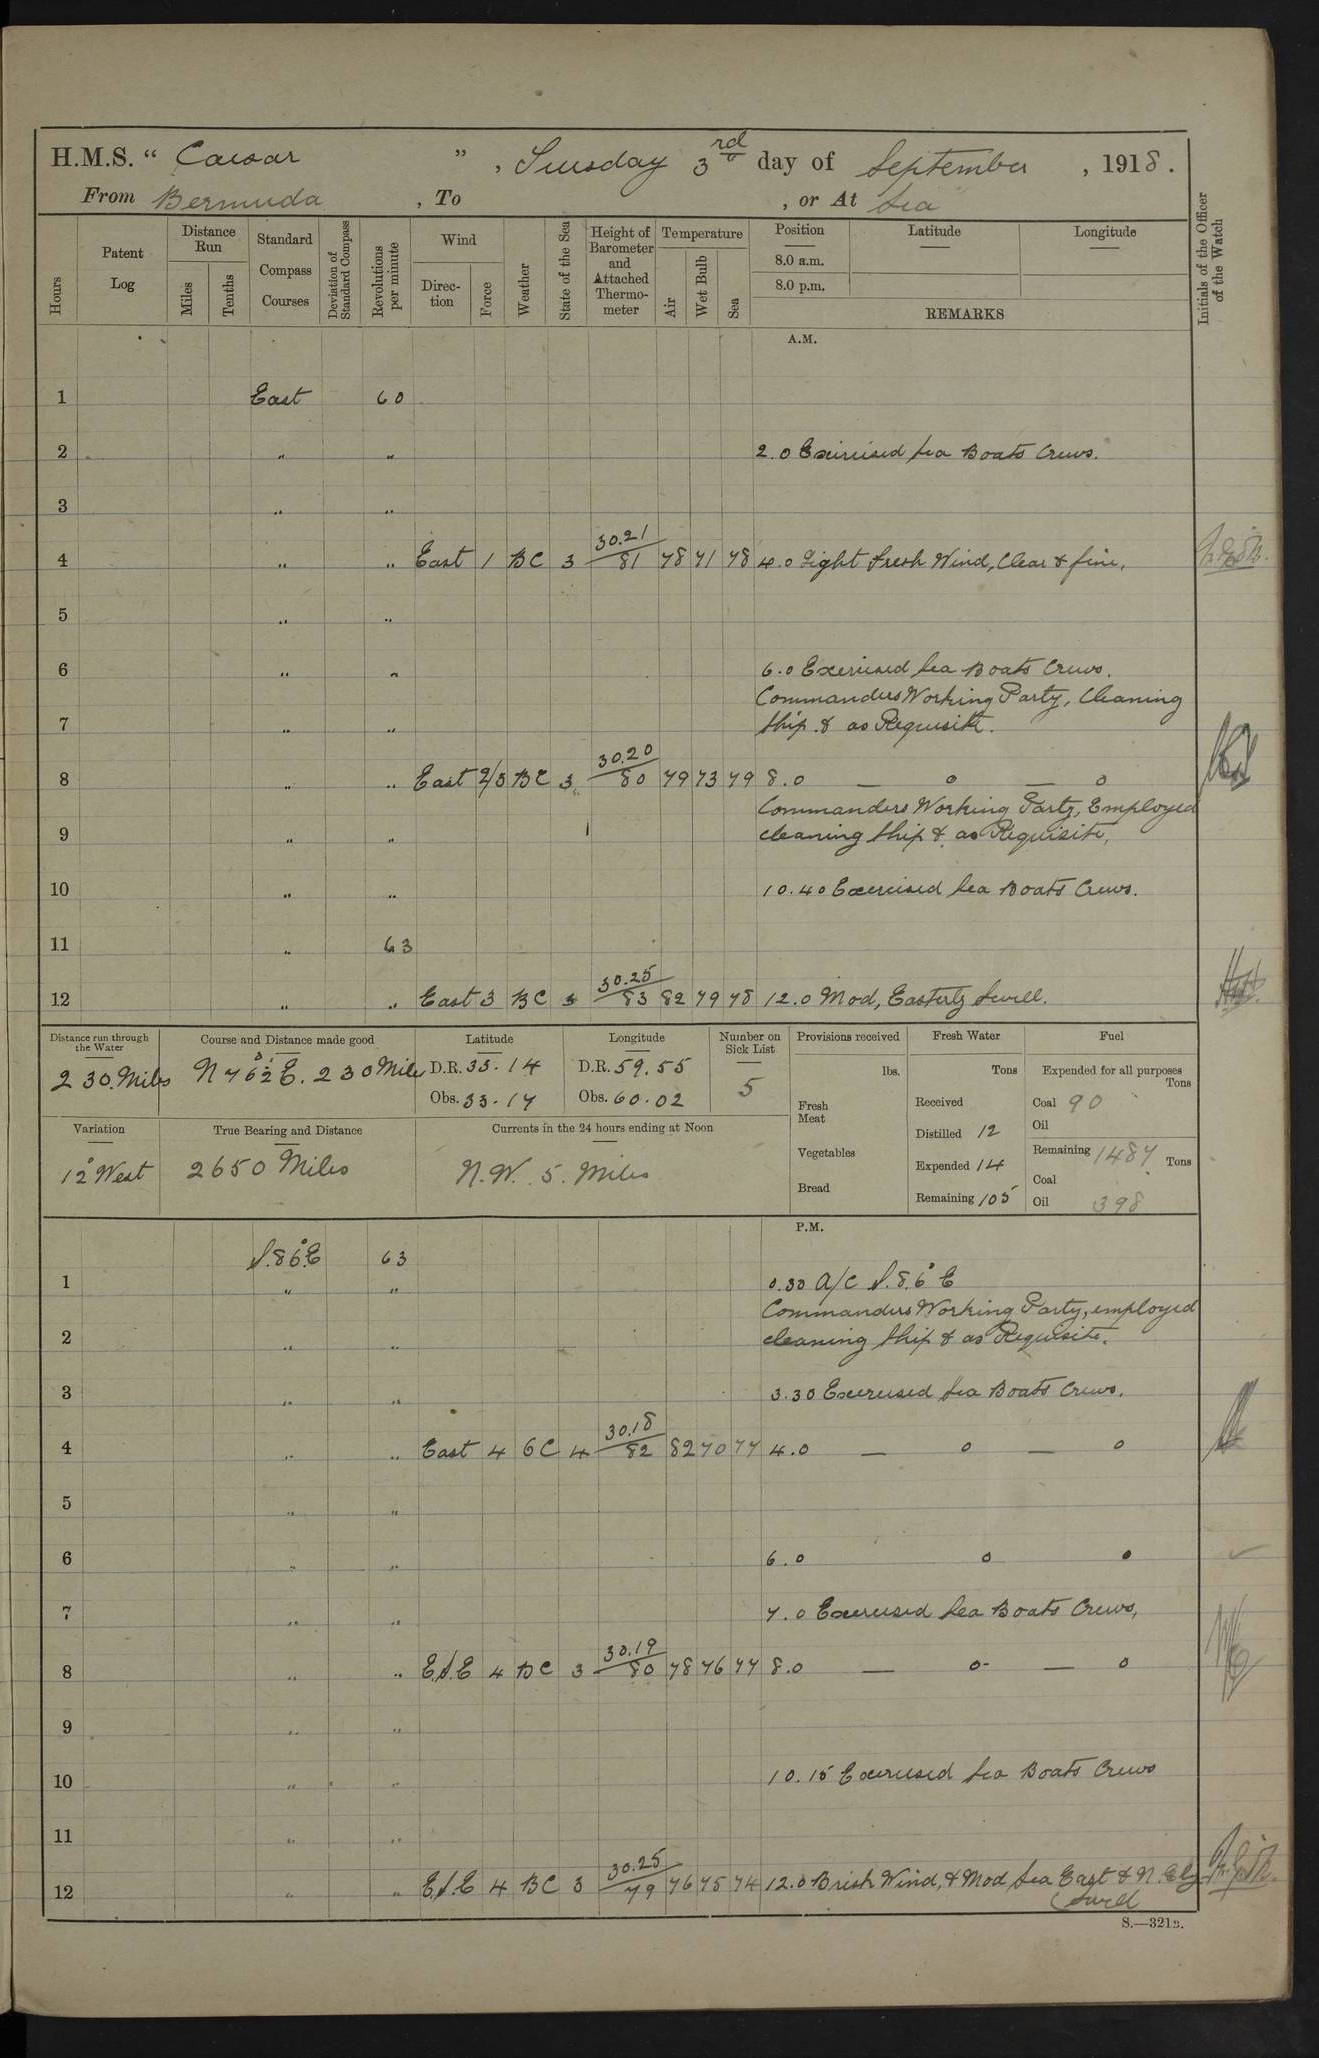 H.M.S. “ Caesar ” , Tuesday 3rd day of September , 1918.
From Bermuda , To , or At Sea
Hours
Patent Log
Distance Run
Miles
Tenths
Standard Compass Courses
Deviation of Standard Compass
Revolutions per minute
Wind
Direction
Force
Weather
State of the Sea
Height of Barometer and Attached Thermometer
Temperature
Air
Wet Bulb
Sea
Position
Latitude
Longitude
8.0 a.m.
8.0 p.m.
REMARKS
Initials of the Officer of the Watch
A.M.
1 East 60
2 " " 2.0 Exercised Sea Boats Crews.
3 " "
4 " " East 1 BC 3 30.21/81 78 71 78 4.0 Light fresh Wind, Clear & fine,
5 " "
6 " " 6.0 Exercised Sea Boats Crews.
Commanders Working Party, Cleaning
7 " " Ship & as Requisite.
8 " " East 2/3 BC 3 30.20/80 79 73 79 8.0 — o — o
Commanders Working Party, Employed
9 " " cleaning Ship & as Requisite,
10 " " 10.40 Exercised Sea Boats Crews.
11 " 63
12 " " East 3 BC 3 30.25/83 82 79 78 12.0 Mod, Easterly Swell.
Distance run through the Water
230. Miles
Course and Distance made good
N 76½° E. 230 Miles
Latitude
D.R. 33.14
Obs. 33.17
Longitude
D.R. 59.55
Obs. 60.02
Number on Sick List
5
Provisions received
lbs.
Fresh Meat
Vegetables
Bread
Fresh Water
Tons
Received
Distilled 12
Expended 14
Remaining 105
Fuel
Expended for all purposes
Tons
Coal 90
Oil
Remaining 1487 Tons
Coal
Oil 398
Variation
12° West
True Bearing and Distance
2650 Miles
Currents in the 24 hours ending at Noon
N.W. 5. Miles
P.M.
S.86°E 63
1 " " 0.30 A/C S.86° E
Commanders Working Party, employed
2 " " cleaning Ship & as Requisite.
3 " " 3.30 Exercised Sea Boats Crews.
4 " " East 4 BC 4 30.18/82 82 70 77 4.0 — o — o
5 " "
6 " " 6.0 o o
7 " " 7.0 Exercised Sea Boats Crews,
8 " " E.S.E 4 BC 3 30.19/80 78 76 77 8.0 — o — o
9 " "
10 " " 10.15 Exercised Sea Boats Crews
11 " "
12 " " E.S.E 4 BC 3 30.25/79 76 75 74 12.0 Brisk Wind, & Mod Sea East & N.Ely
Swell
S.—321B.